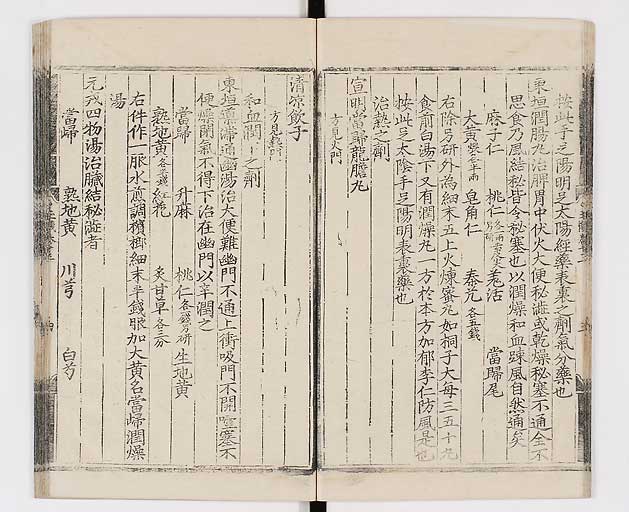 按此手足陽明足太陽經藥表裏之劑氣分藥也
東垣潤腸丸治脾胃中伏火大便秘澁或乾燥秘塞不通全不
思食乃風結秘皆令秘塞也以潤燥和血踈風自然通矣
麻子仁 桃仁 羌活 當歸尾
大黄 皂角仁 秦艽各五錢
右除另研外為細末五上火煉蜜丸如桐子大每三五十丸
食前白湯下又有潤燥丸一方於本方加郁李仁防風是也
按此足太陰手足陽明表裏藥也
治熱之劑
宣明當歸龍膽丸
方見火門
清凉飲子
方見熱門
和血潤下之劑
東垣導滯通幽湯治大便難幽門不通上衝吸門不開噎塞不
便燥閉氣不得下治在幽門以辛潤之
當歸 升麻 桃仁各一錢另研 生地黄
熟地黄各五錢 紅花 炙甘草各三分
右件作一服水煎調檳榔細末半錢服加大黄名當歸潤燥
湯
元戎四物湯治臓結秘澁者
當歸 熟地黄 川芎 白芍